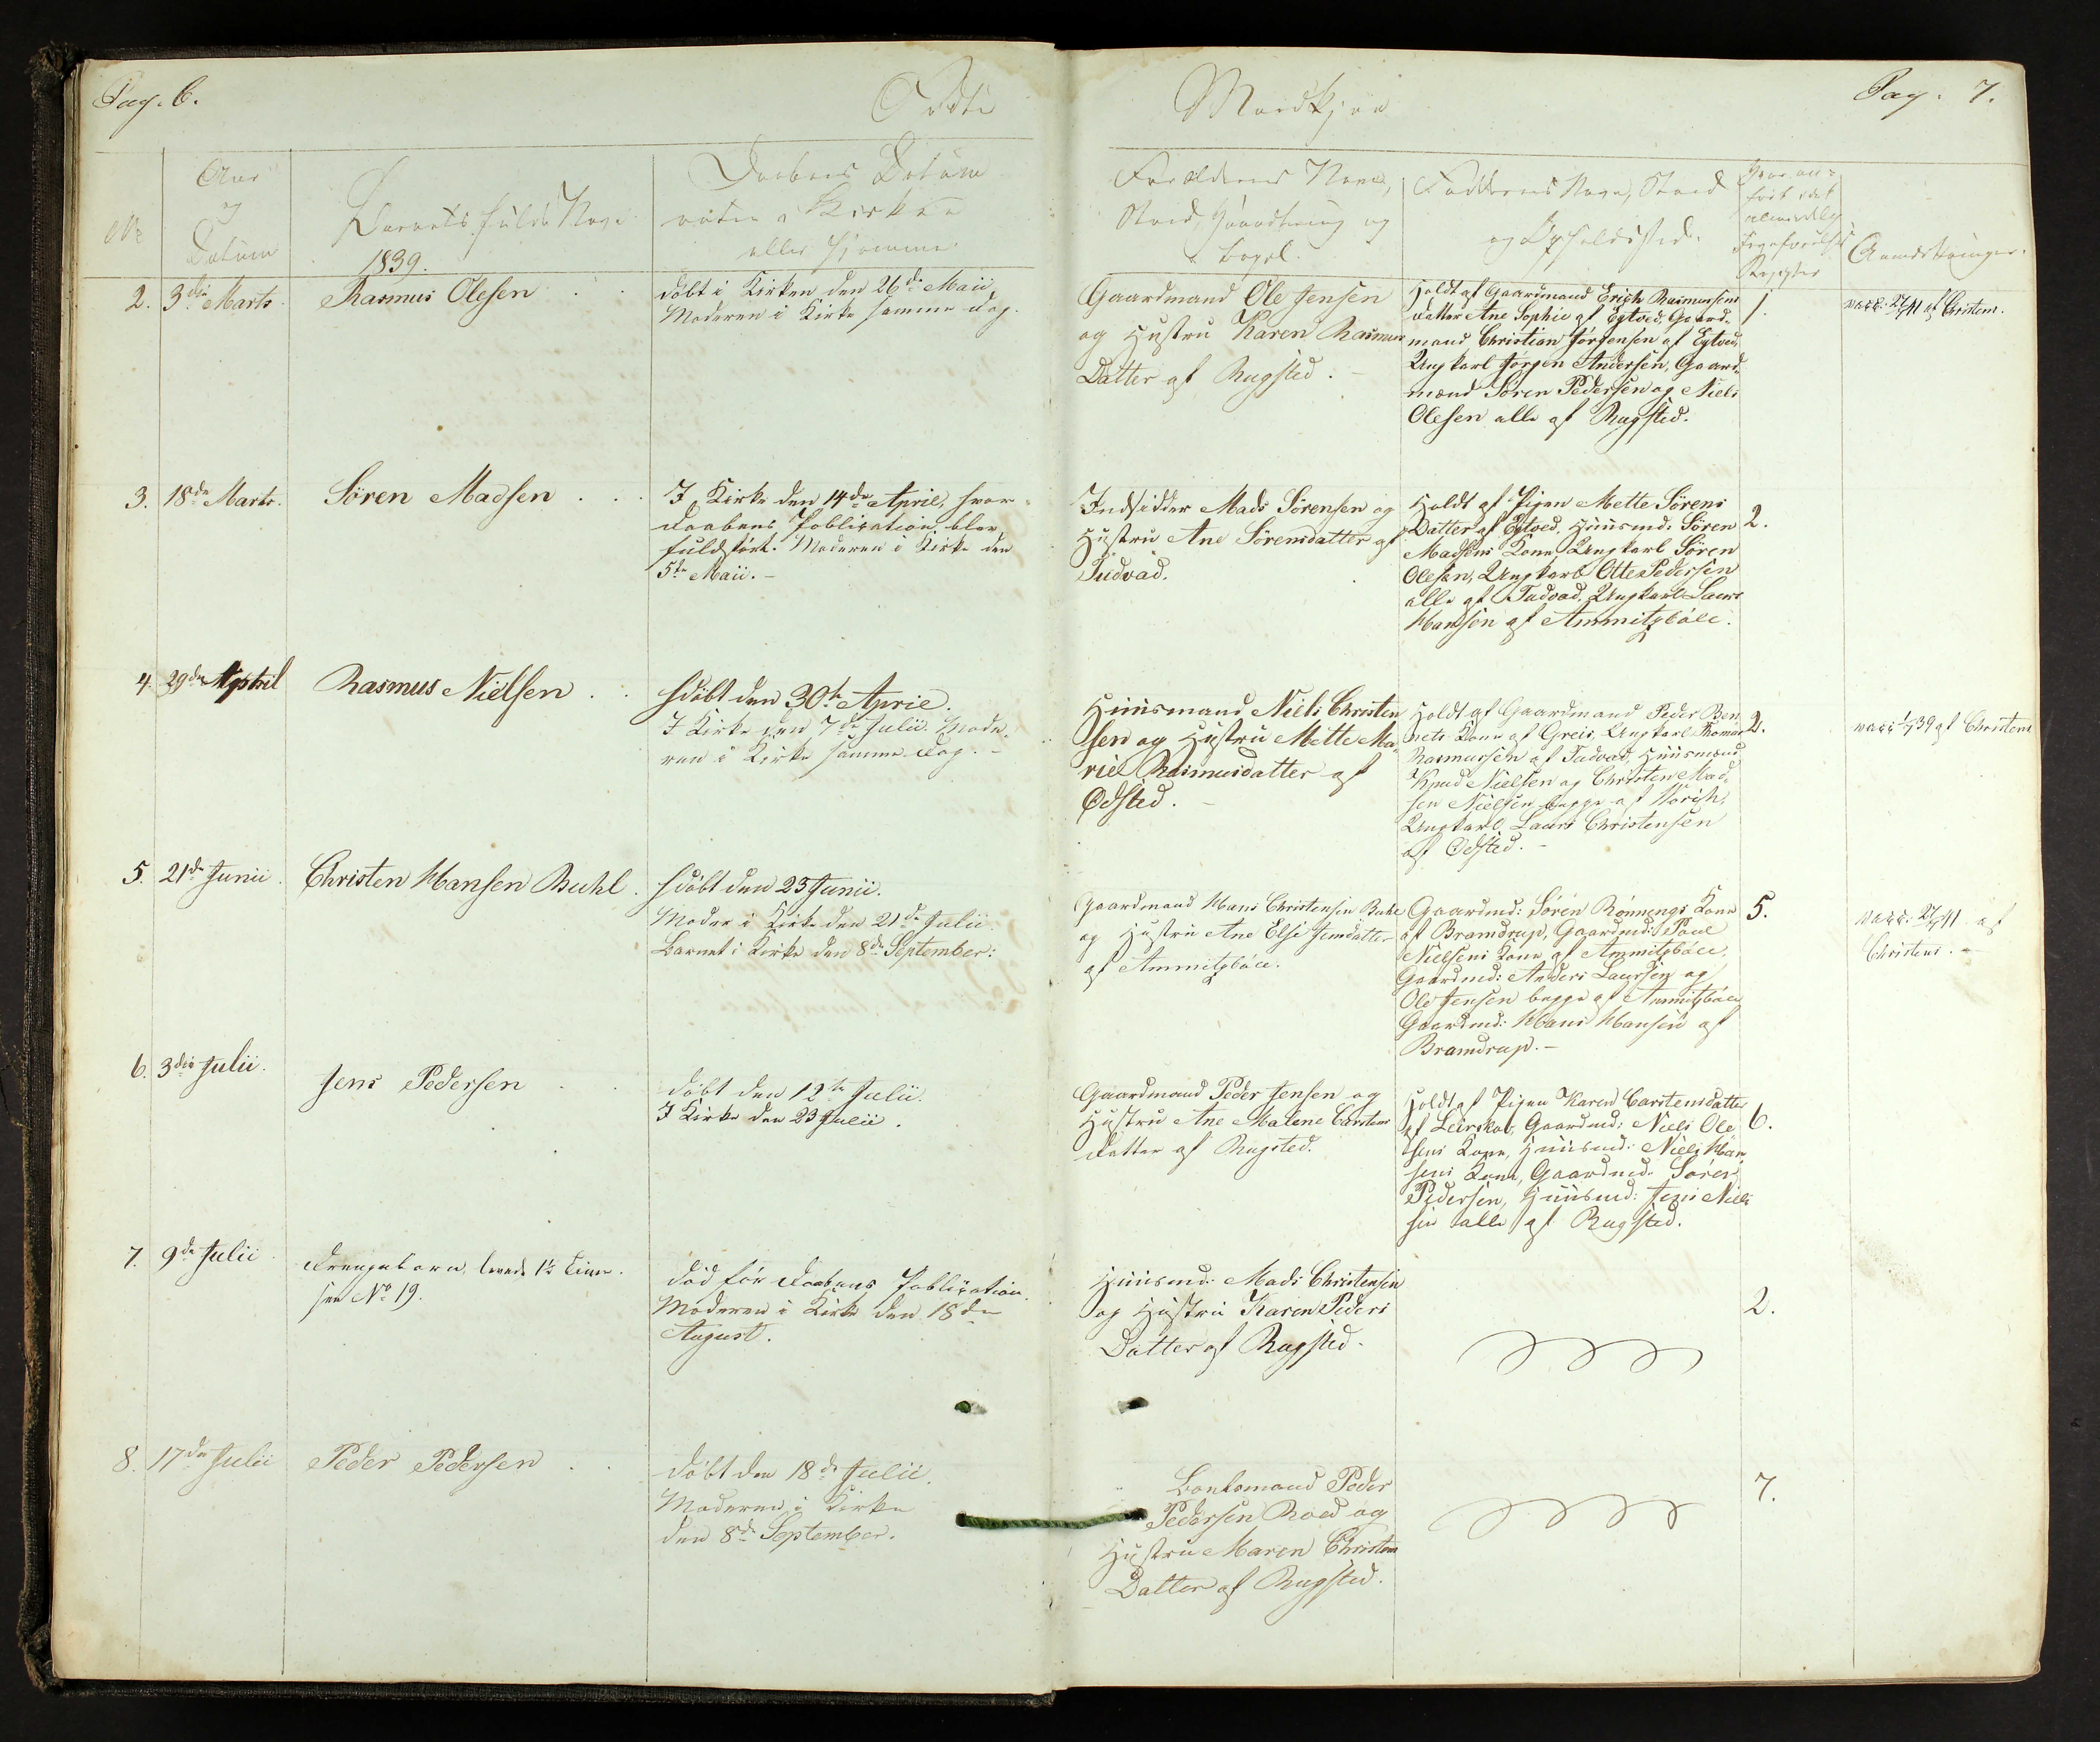 Pag. 6.
Födte
No
Aar
og
Datum
Barnets fulde Navn
1839.
Daabens Datum
enten i Kirken
eller hjemme.
2. 3die Marts. Rasmus Olesen
döbt i Kirken den 26de Maii
Moderen i Kirke samme Dag.
3. 18de Marts. Sören Madsen
I Kirke den 14de April, hvor
Daabens Publication blev
fuldfört. Moderen i Kirke den
5te Maii.-
4. 29de April Rasmus Nielsen
hdöbt den 30te April.
I Kirke den 7de Julii. Mode-
ren i Kirke samme Dag.-
5. 21de Junii. Christen Hansen Buhl.
hdöbt den 23 Junii.
Moder i Kirke den 21de Julii
Barnet i Kirke den 8de September:
6. 3die Julii. Jens Pedersen
döbt den 12te Julii.
I Kirke den 23 Julii.
7. 9de Julii. Drengebarn, levede 1½ Time.
see No 19.
död för Daabens Publication.
Moderen i Kirke den 18de
August.
8. 17de Julii Peder Pedersen
döbt den 18de Julii.
Moderen i Kirke
den 8de September.
Mandkjön
Pag. 7.
Forældrenes Navn,
Stand, Haandtering og
Bopæl.
Faddernes Navn, Stand
og Opholdssted.
Hvor an-
fört i det
almindelige
Jevnförelses
Register
Anmærkninger.
Gaardmand Ole Jensen
og Hustru Karen Rasmus
Datter af Rugsted.-
Holdt af Gaardmand Erich Rasmussens
Datter Ane Sophie af Egtved, Gaard-
mand Christian Jörgensen af Egtved,
Ungkarl Jörgen Andersen, Gaard-
mænd Sören Pedersen og Niels
Olesen alle af Rugsted.
1.
vacc: 27/ 41 af Christens.
Indsidder Mads Sörensen og
Hustru Ane Sörensdatter af
Tudvad.
Holdt af Pigen Mette Sörens
Datter af Egtved, Huusmd: Sören
Madsens Kone, Ungkarl Sören
Olesen, Ungkarl Otte Pedersen
alle af Tudvad, Ungkarl Laurs
Hansen af Ammitzböle.
2.
Huusmand Niels Christen
sen og Hustru Mette Ma-
rie Rasmusdatter af
Ödsted.-
Holdt af Gaardmand Peder Ben
nets Kone af Greis, Ungkarl Thomas
Rasmussen af Tudvad, Huusmænd
Knud Nielsen og Christen Mad-
sen Nielsen begge af
Ungkarl Laurs Christensen
af Ödsted.-
2.
vacc 39 af Christens
Gaardmand Hans Christensen Buhl
og Hustru Ane Else Jensdatter
af Ammitzböle.
Gaardmd: Sören Rönnengs Kone
af Bramdrup, Gaardmd: Poul
Nielsens Kone af Ammitzböle,
Gaardmd: Anders Laursen og
Ole Jensen begge af Ammitzböle
Gaardmd: Hans Hansen af
Bramdrup.-
5.
vacc: 27/ 41 af
Christens.-
Gaardmand Peder Jensen og
Hustru Ane Malene Carstens
Datter af Rugsted.
Holdt af Pigen Karen Carstensdatter
af Leirskov, Gaardmd: Niels Ole
sens Kone, Huusmd: Niels Han
sens Kone, Gaardmd: Sören
Pedersen, Huusmd: Jens Niel
sen alle af Rugsted.
6.
Huusmd: Mads Christensen
og Hustru Karen Peders
Datter af Rugsted.
2.
Boelsmand Peder
Pedersen Roed og
Hustru Maren Christens
Datter af Rugsted.
7.